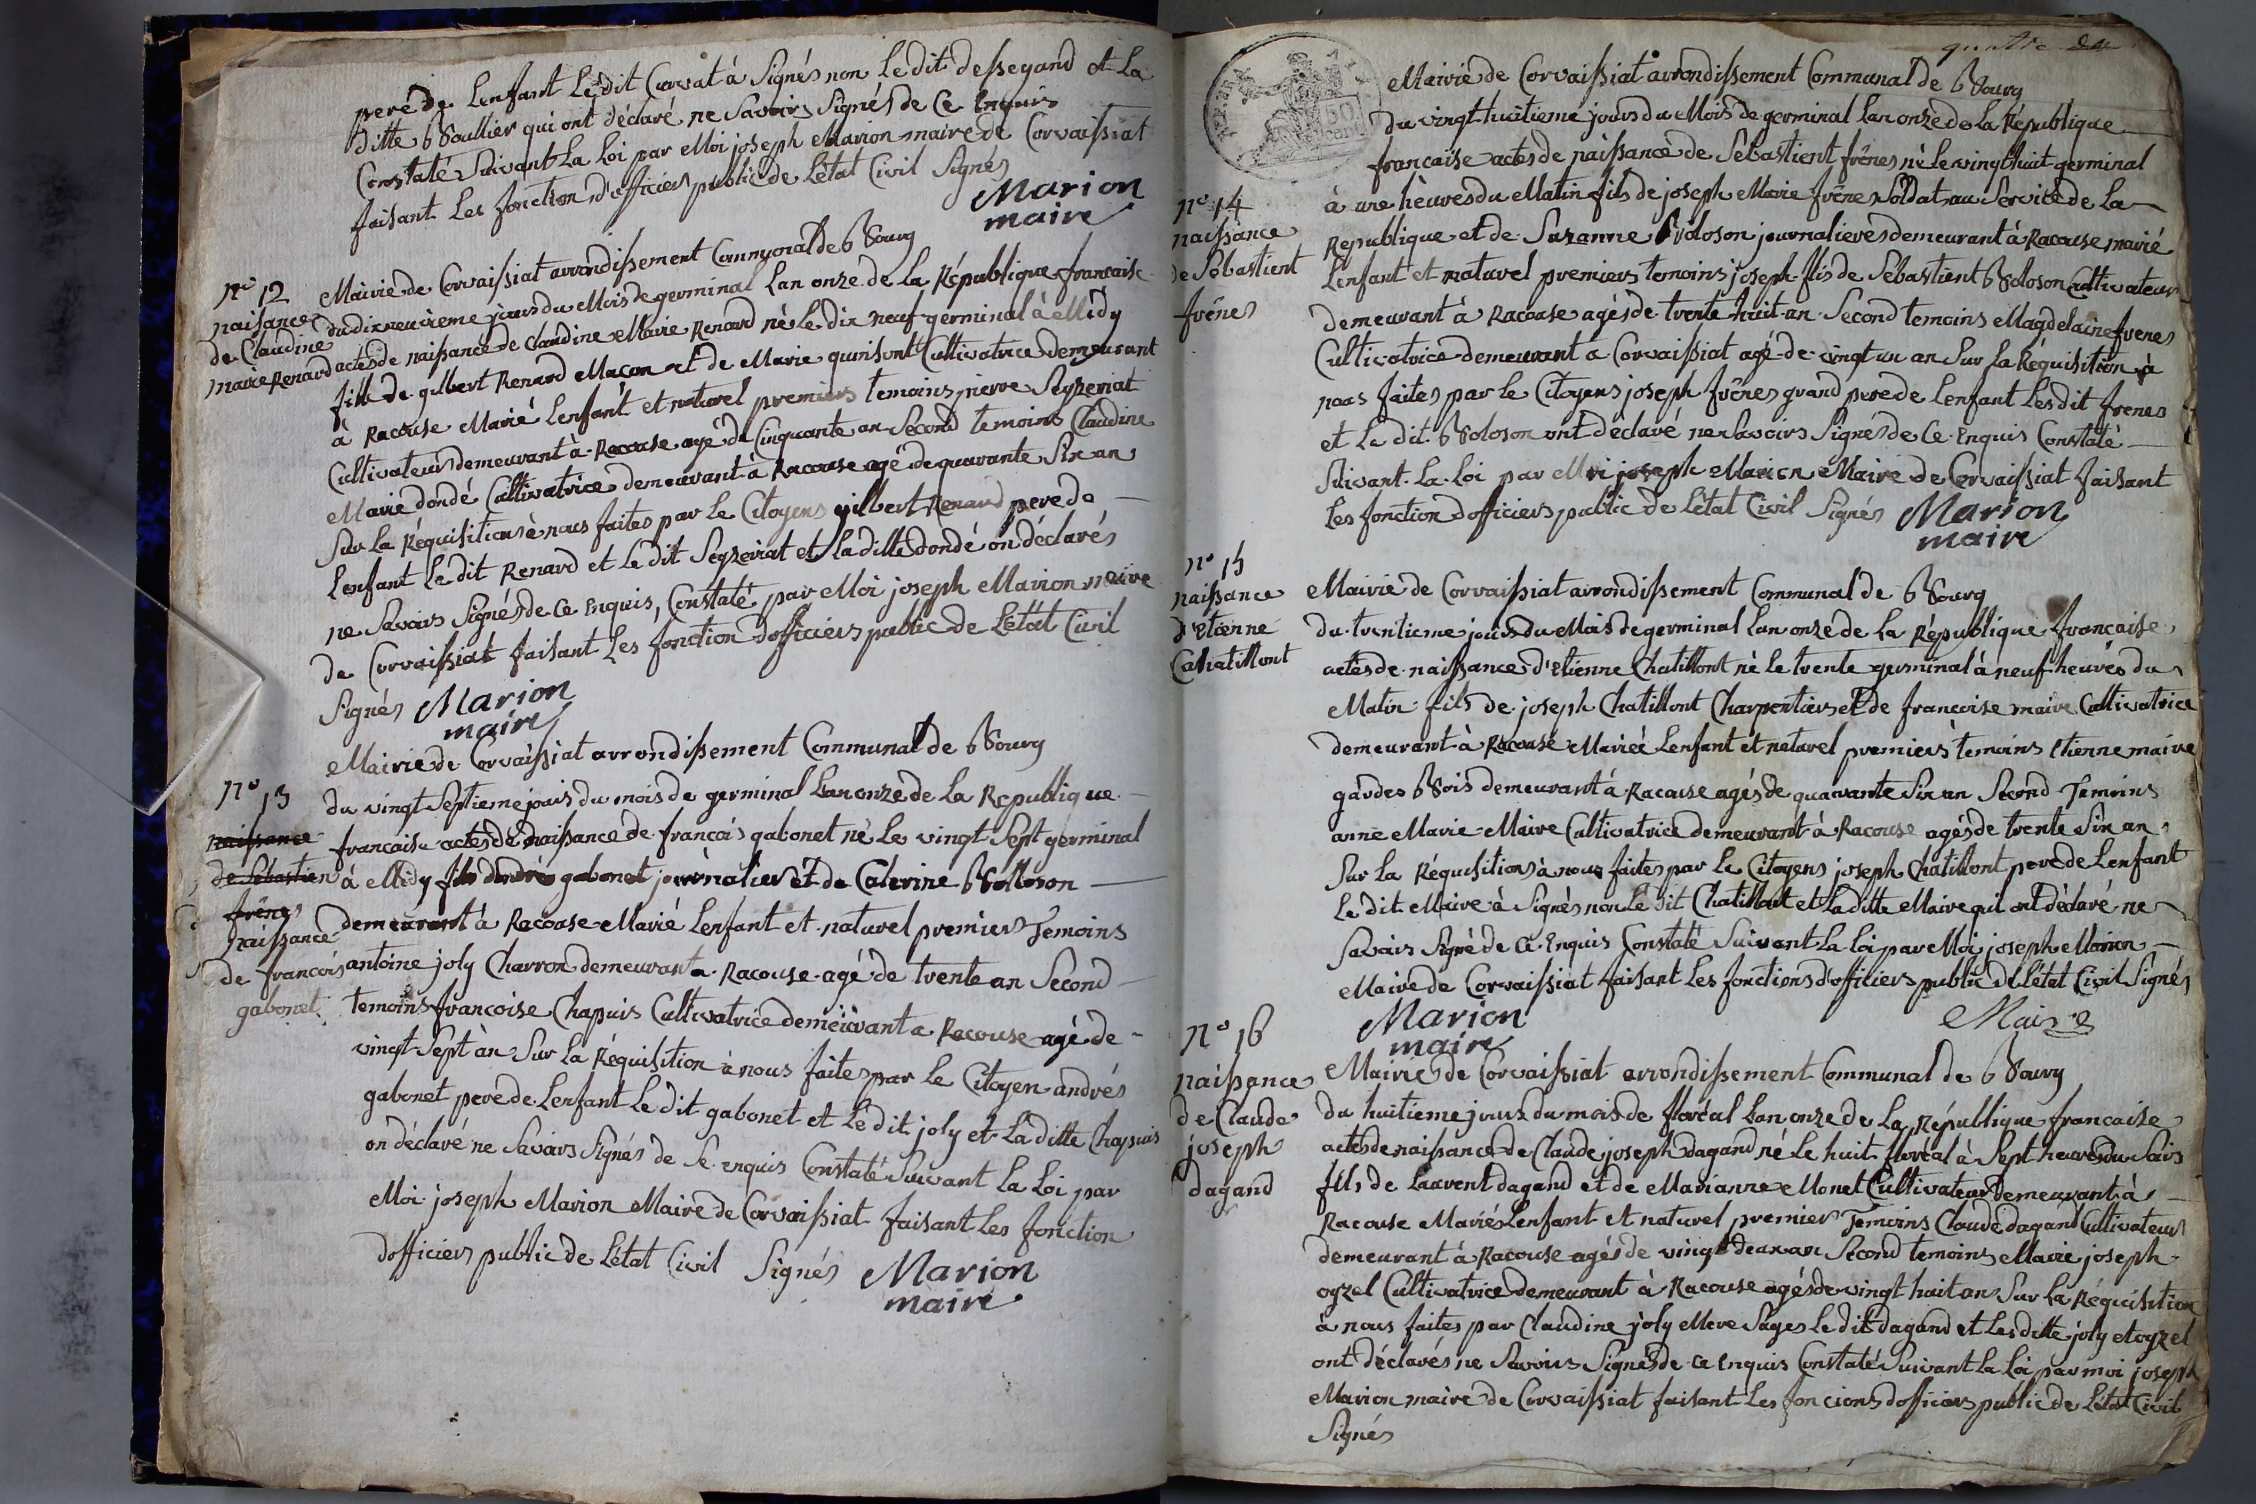 pere de Lenfant Ledit Curvat à Signés non Ledit dessegand et La
ditte bBoullier qui ont déclaré ne Savoirs Signés de Ce Enquis
Constaté Suivant La Loi par Moi joseph Marion maire de Corvaissiat
faisant Les fonction d'officiers public de Létat Civil Signés
Marion
maire
N° 12
naisance
de Claudine
marie Renard
Mairie de Corvaissiat arrondissement Communal de bBourg
du dixneuvieme jours du Mois de germinal Lan onze de la République francaise
actes de naissance de Claudine Marie Renard né le dix neuf germinal à Midy
fille de gilbert Renard Macon et de Marie quinsont Cultivatrice demeurant
à Racouse Marié Lenfant et naturel premiers temoins pierre Seyzeriat
Cultivateurs demeurant à Racouse agé de Cinquante an Second temoins Claudine
Marie dondé Cultivatrice demeurant à Racouse agé de quarante Six an
Sur La Réquisitions à nous faites par Le Citoyens gilbert Renard pere de
Lenfant Le dit Renard et Le dit Seyzeriat et La ditte dondé on déclarés
ne Savoirs Signés de Ce Enquis, Constaté par Moi joseph Marion maire
de Corvaissiat faisant Les fonction dofficiers public de Létat Civil
Signés Marion
maire
N° 13
naissance
de Sebastien
frênes
naissance
de francois
gabonet
Mairie de Corvaissiat arrondissement Communal de bBourg
du vingt Septieme jours du mois de germinal Lan onze de La Republique
francaise actes de naissance de francois gabonet né Le vingt Sept germinal
à Midy fils dandré gabonet journalier et de Caterine bBolloson
demeurant à Racouse Marié Lenfant et naturel premiers Temoins
antoine joly Charron demeurant a Racouse agé de trente an Second
temoins francoise Chapuis Cultivatrice demeurant a Racouse agé de
vingt Sept àn Sur La Réquisition à nous faites par Le Citoyen andrés
gabonet pere de Lenfant Le dit gabonet et Le dit joly et La ditte Chapuis
on déclaré ne Savoirs Signés de Se enquis Constaté Suivant La Loi par
Moi joseph Marion Maire de Corvaissiat faisant Les fonction
dofficiers public de Létat Civil Signés Marion
maire
quatre
Mairie de Corvaissiat arrondissement Communal de bBourg
du vingt huitieme jours du Mois de germinal Lan onze de La République
francaise actes de naissance de Sebastient frênes né Le vingt huit germinal
N° 14
naissance
de Sébastient
frênes
à une hèures du Matin fils de joseph Marie frênes Soldat au Service de La
Republique et de Suzanne bBoloson journalieres demeurant à Racouse marié
Lenfant et naturel premiers temoins joseph fils de Sébastient bBoloson Cultivateur
demeurant à Racouse agés de trente huit an Second temoins Magdelaine frenes
Cultivatrice demeurant a Corvaissiat agé de vingt un an Sur La Réquisition à
nous faites par Le Citoyens joseph frênes grand pere de Lenfant Lesdit frenes
et Le dit bBoloson ont déclaré ne Savoirs Signés de Ce Enquis Constaté
Suivant La Loi par Moi joseph Marion Maire de Corvaissiat faisant
Les fonction dofficiers public de Létat Civil Signés Marion
maire
N° 15
naissance
d'Etienne
Cahatillont
Mairie de Corvaissiat arrondissement Communal de bBourg
du trentieme jours du Mois de germinal Lan onze de La République francaise
actes de naissance d'Etienne Chatillont né le trente germinal à neuf heures du
Matin fils de joseph Chatillont Charpentiers et de francoise maire Cultivatrice
demeurant à Racouse Mariéé Lenfant et naturel premiers temoins Etienne maire
gardes bBois demeurant à Racouse agés de quarante Six an Second Temoins
anne Marie Maire Cultivatrice demeurant à Racouse agés de trente Six an
Sur La Réquisitions à nous faites par Le Citoyens joseph Chatillont pere de Lenfant
Le dit Maire à Signés non Le dit Chatillont et La ditte Maire qui ont déclaré ne
Savoirs Signé de Ce Enquis Constaté Suivant La Loi par Moi joseph Marion
Maire de Corvaissiat faisant Les fonctions d'officiers public de Létat Civil Signés
Marion
maire
Maire
N° 16
naissance
de Claude
joseph
dagand
Mairie de Corvaissiat arrondissement Communal de bBourg
du huitieme jours du mois de floréal Lan onze de La République francaise
actes de naissance de Claude joseph dagand né Le huit floréal à Sept heures du Soirs
fils de Laurent dagand et de Marianne Monet Cultivateur demeurant à
Racouse Mariés Lenfant et naturel premier Temoins Claude dagand Cultivateur
demeurant à Racouse agés de vingt deux an Second temoins Marie joseph
oyzel Cultivatrice demeurant à Racouse agés de vingt huit an Sur La Réquisition
à nous faites par Claudine joly Mere Sages Le dit dagand et Les ditte joly et oyzel
ont déclarés ne Savoirs Signés de Ce Enquis Constaté Suivant La Loi par moi joseph
Marion maire de Corvaissiat faisant Les foncions dofficiers public de Létat Civil
Signés